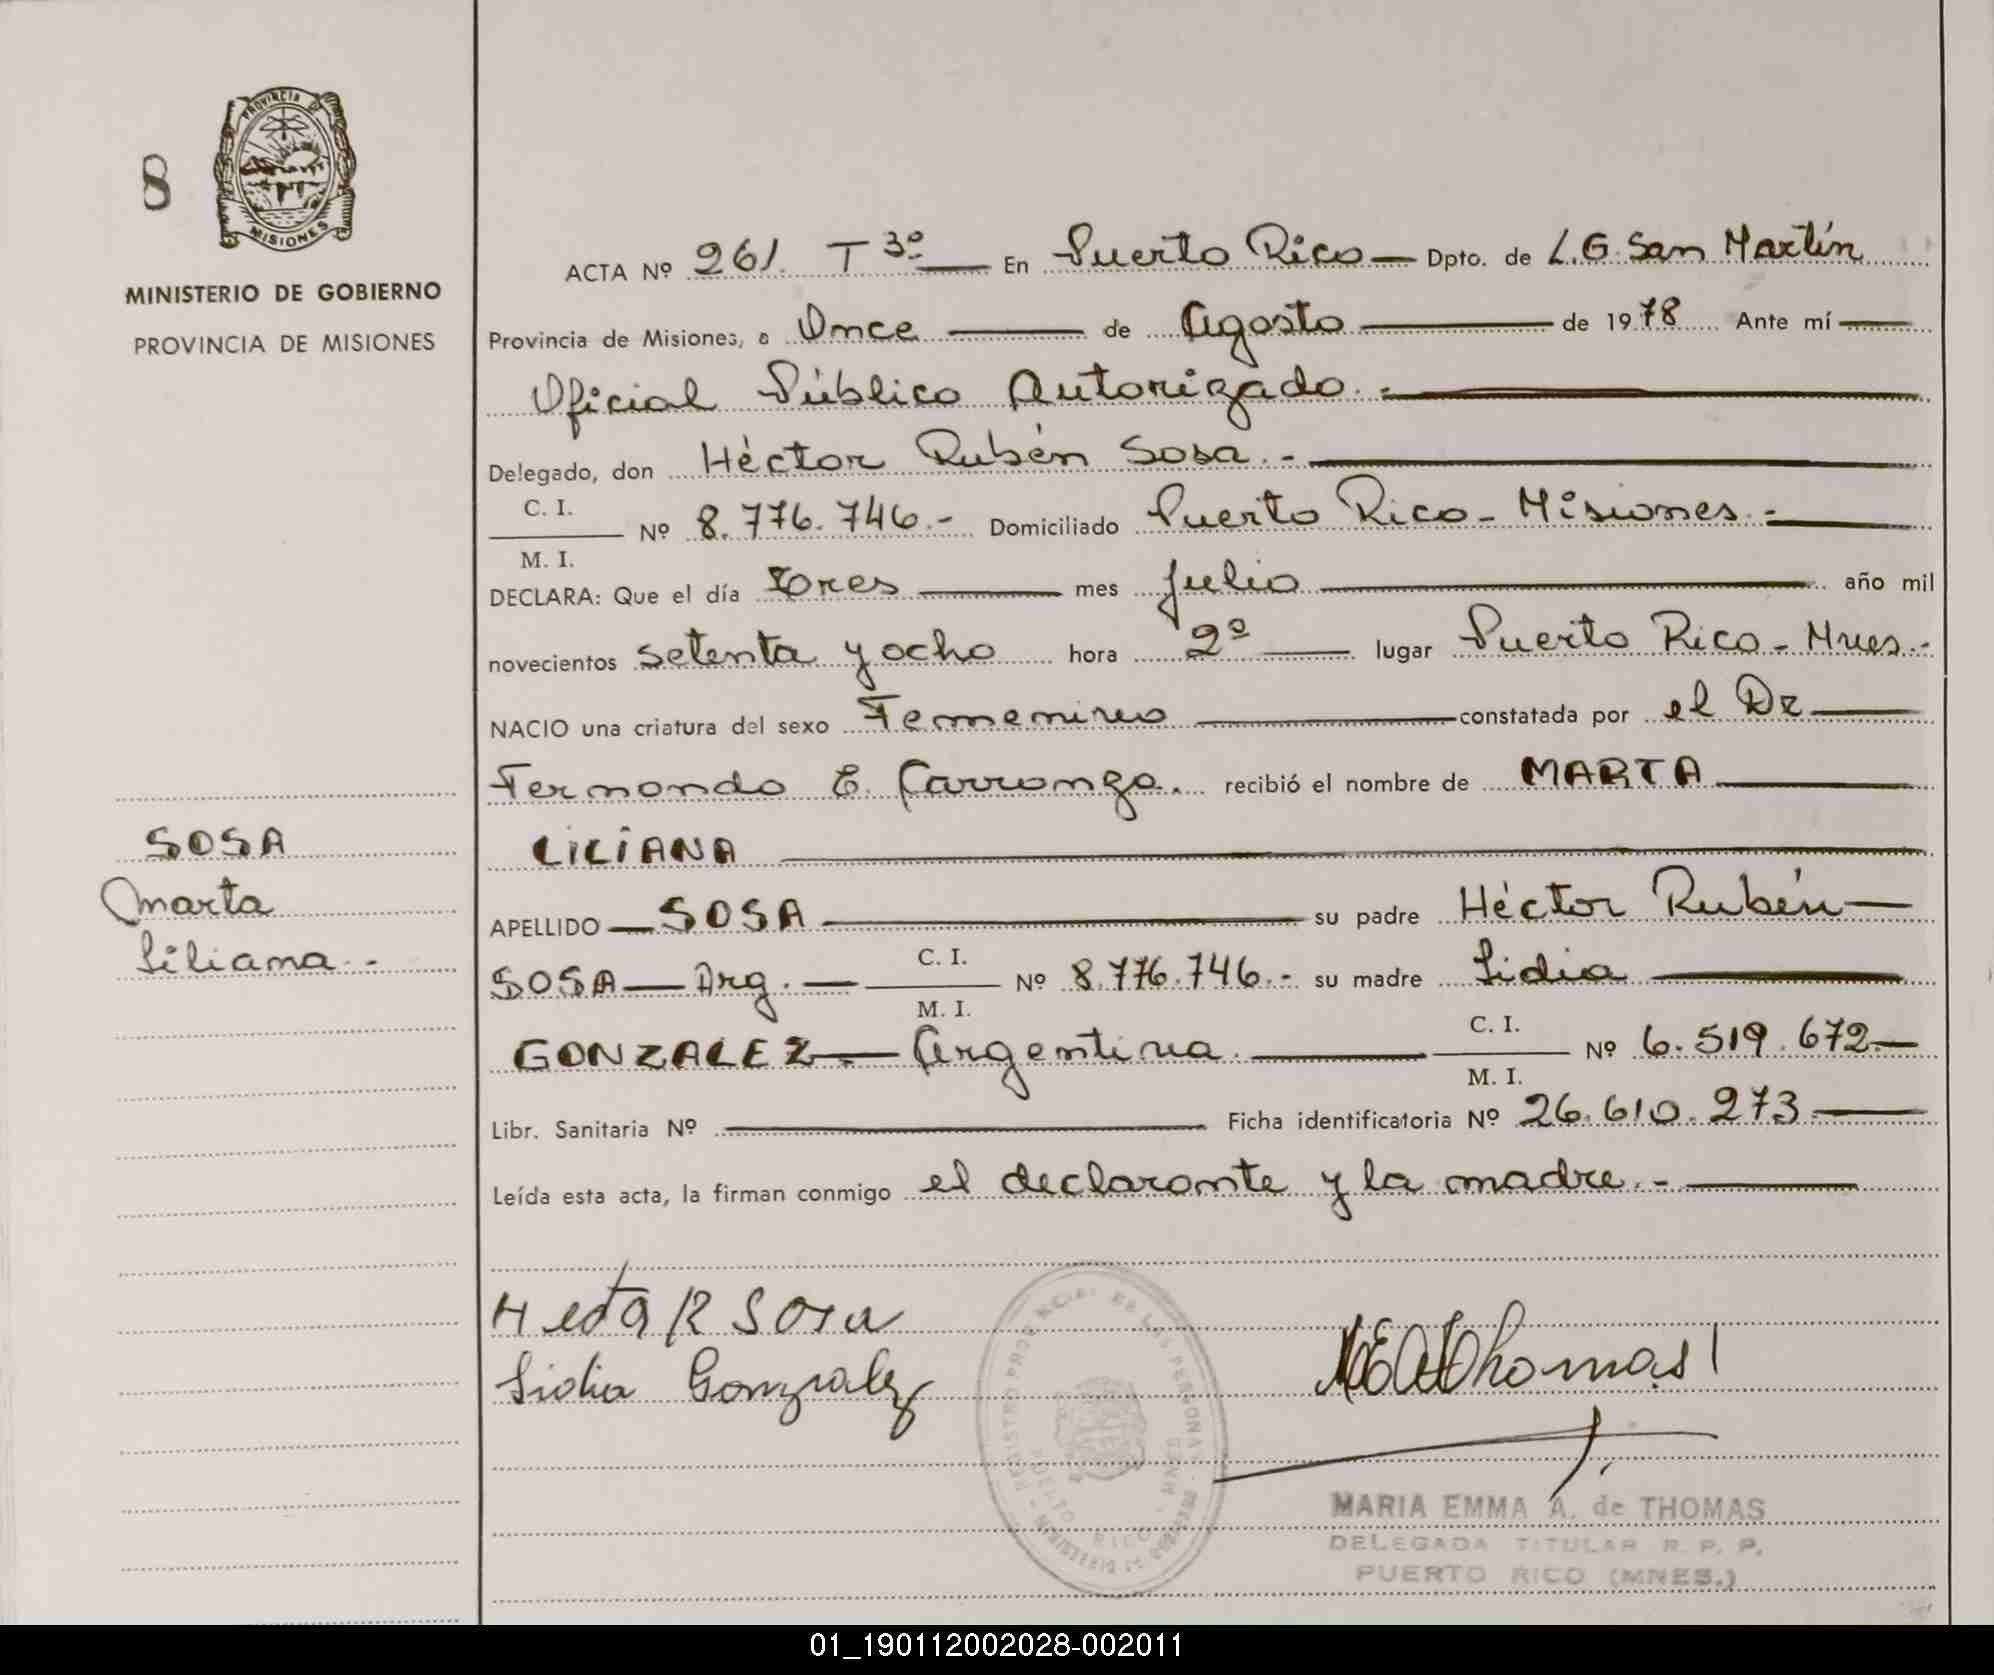 8
PROVINCIA DE
MISIONES
MINISTERIO DE GOBIERNO
PROVINCIA DE MISIONES
SOSA
Marta
Liliana.-
ACTA Nº 261. T 3º — En Puerto Rico — Dpto. de L.G. San Martín
Provincia de Misiones, a Once — de Agosto — de 1978 Ante mí —
Oficial Público Autorizado.-
Delegado, don Héctor Rubén Sosa.-
C. I.
Nº 8.776.746.- Domiciliado Puerto Rico - Misiones.-
M. I.
DECLARA: Que el día tres — mes julio — año mil
novecientos setenta y ocho hora 2º — lugar Puerto Rico - Mnes.-
NACIO una criatura del sexo Femenino — constatada por el Dr —
Fernando E. Carronza. recibió el nombre de MARTA —
LILIANA —
APELLIDO — SOSA — su padre Héctor Rubén —
C. I.
SOSA — Arg. — Nº 8.776.746.- su madre Lidia —
M. I.
C. I.
GONZALEZ.— Argentina. — Nº 6.519.672.—
M. I.
Libr. Sanitaria Nº — Ficha identificatoria Nº 26.610.273.—
Leída esta acta, la firman conmigo el declarante y la madre.-
R Sosa
Lidia Gonzalez
Thomas
REGISTRO PROVINCIAL DE LAS PERSONAS
PUERTO RICO - MNES
MINISTERIO DE GOBIERNO
MARIA EMMA A. de THOMAS
DELEGADA TITULAR R. P. P.
PUERTO RICO (MNES.)
01_190112002028-002011